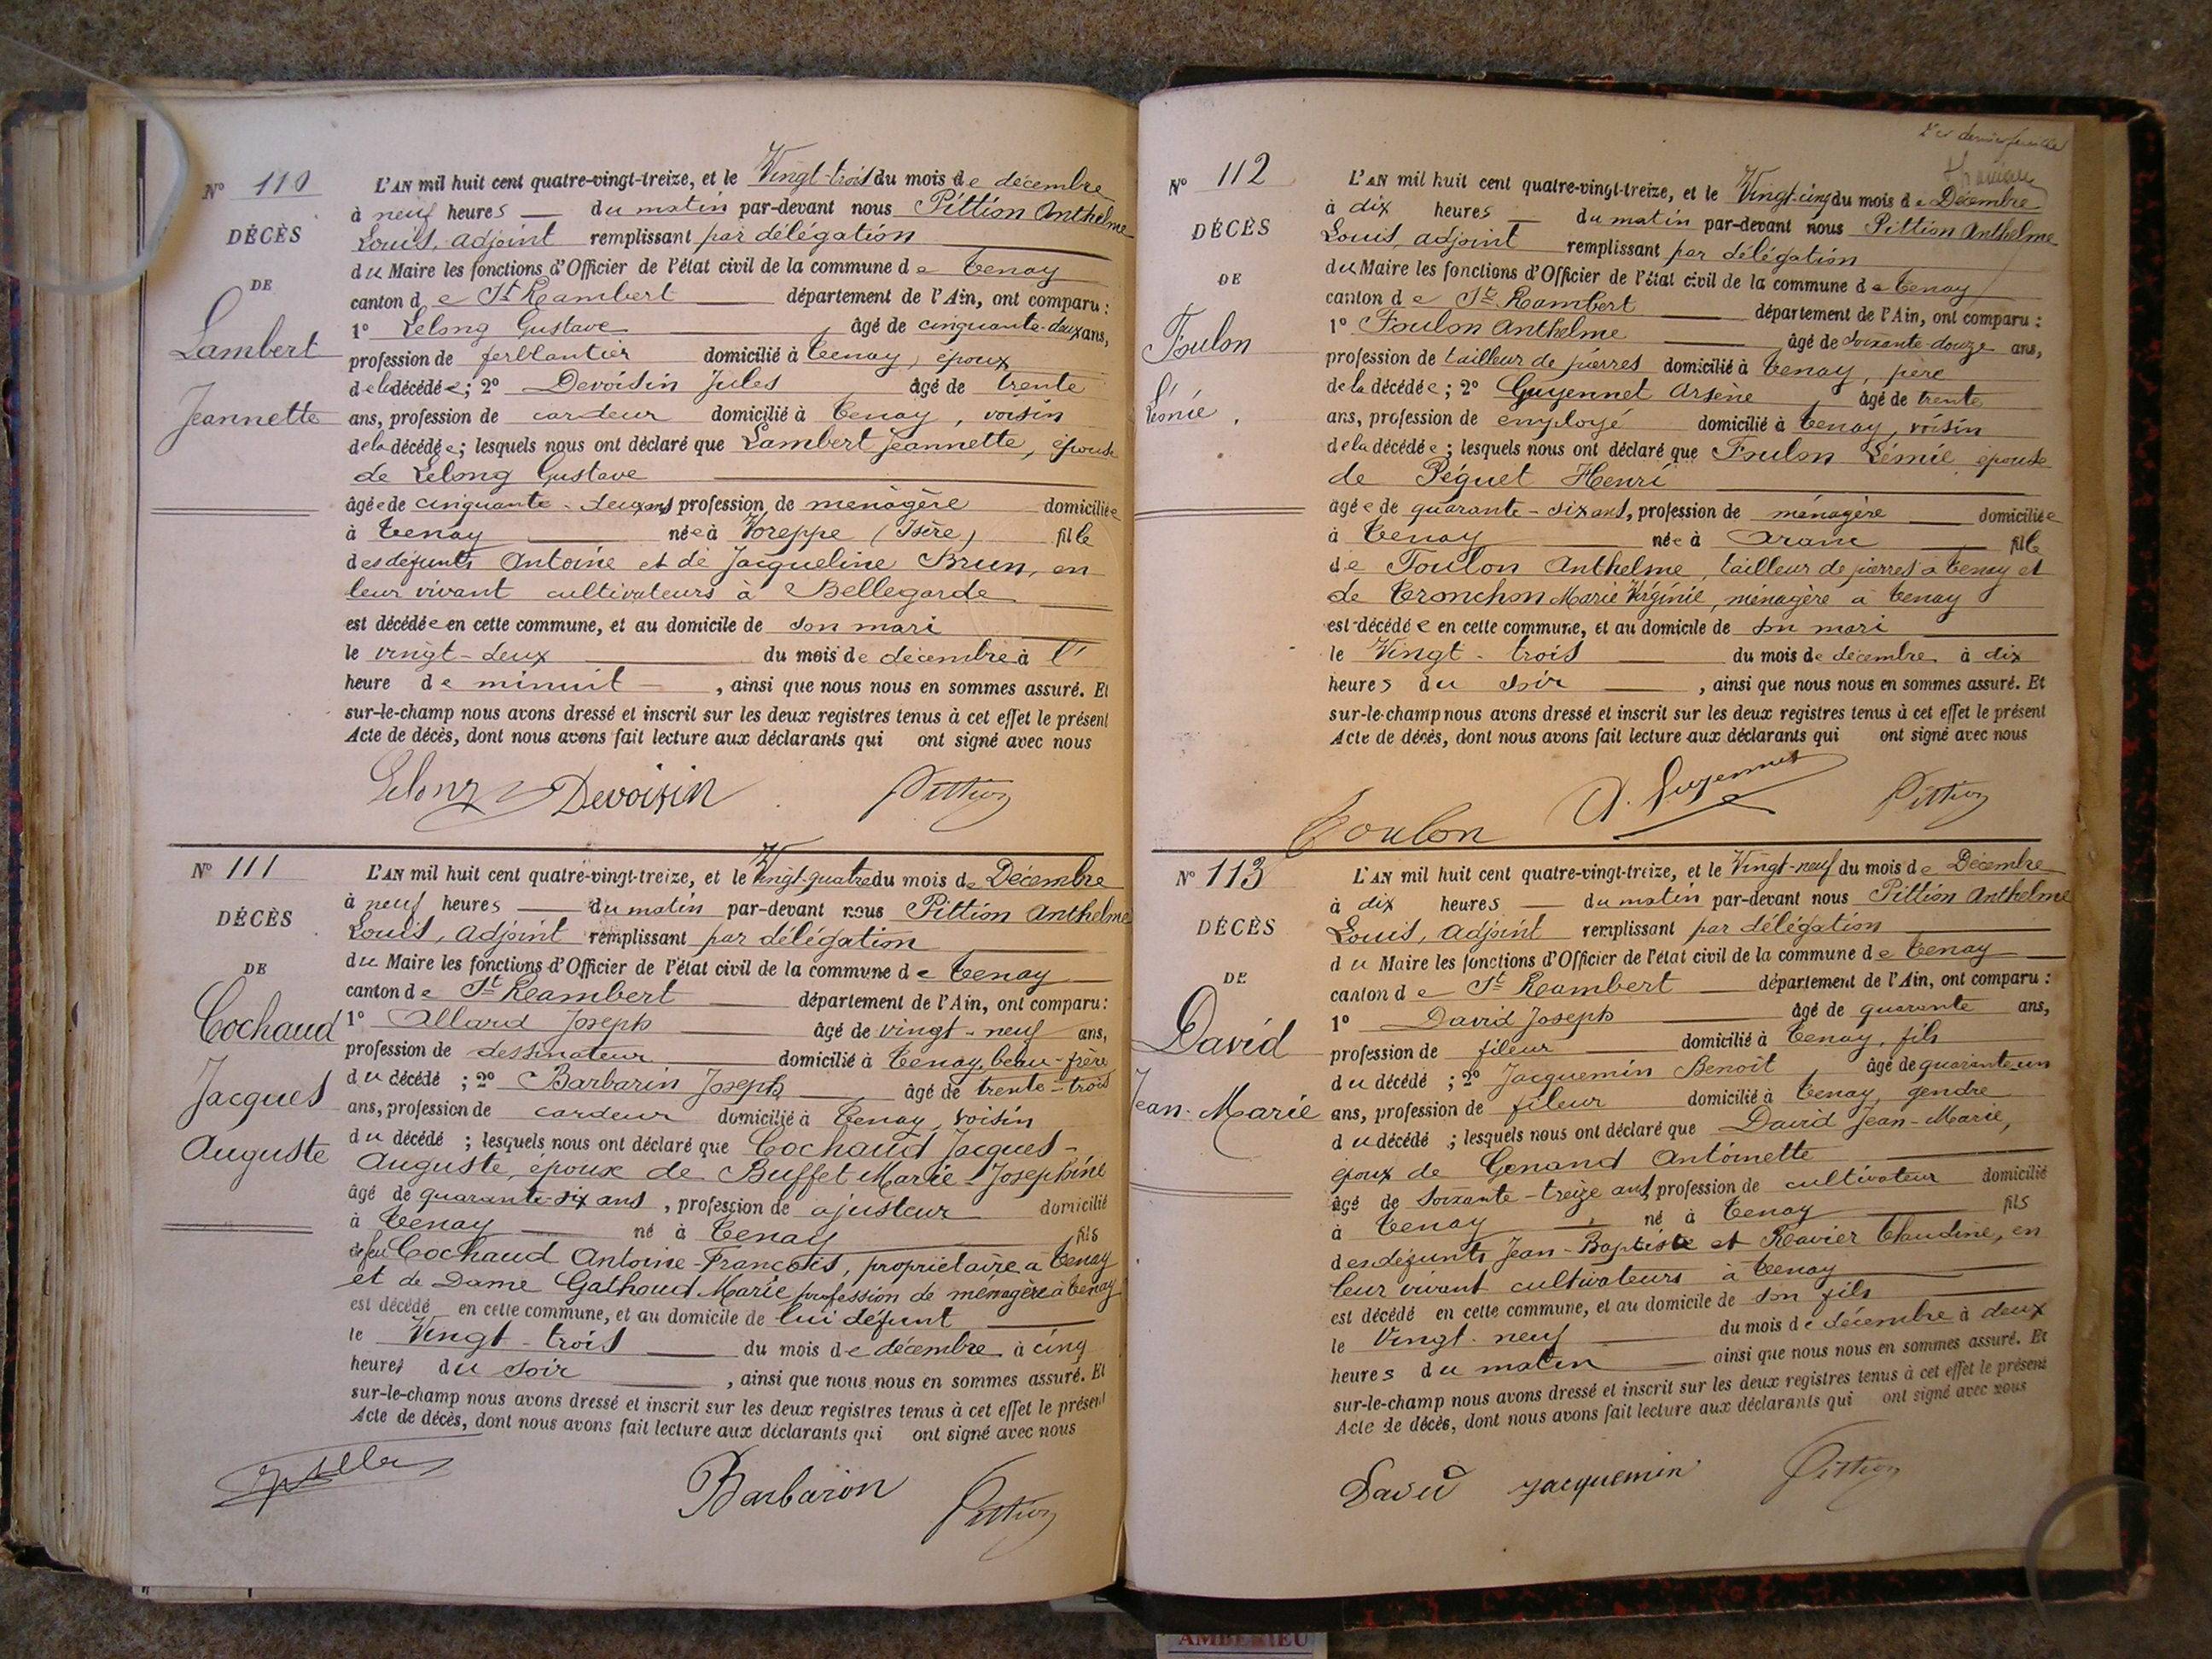 Nº 110
DÉCÈS
DE
Lambert
Jeannette
L'AN mil huit cent quatre-vingt-treize, et le Vingt-trois du mois de décembre
à neuf heures du matin par-devant nous Pittion Anthelme
Louis, adjoint remplissant par délégation
du Maire les fonctions d'Officier de l'état civil de la commune de Tenay
canton de St Rambert département de l'Ain, ont comparu :
1º Lelong Gustave, âgé de cinquante-deux ans,
profession de ferblantier domicilié à Tenay, époux
de la décédée; 2º Devoisin Jules, âgé de trente
ans, profession de cardeur domicilié à Tenay, voisin
de la décédée; lesquels nous ont déclaré que Lambert Jeannette, épouse
de Lelong Gustave
âgée de cinquante-deux ans profession de menagère domiciliée
à Tenay née à Voreppe (Isère) fille
des défunts Antoine et de Jacqueline Brun, en
leur vivant cultivateurs à Bellegarde
est décédée en cette commune, et au domicile de son mari
le vingt-deux du mois de décembre à l'
heure de minuit, ainsi que nous nous en sommes assuré. Et
sur-le-champ nous avons dressé et inscrit sur les deux registres tenus à cet effet le présent
Acte de décès, dont nous avons fait lecture aux déclarants qui ont signé avec nous
Lelong Devoisin Pittion
Nº 111
DÉCÈS
DE
Cochaud
Jacques
Auguste
L'AN mil huit cent quatre-vingt-treize, et le Vingt-quatre du mois de Décembre
à neuf heures du matin par-devant nous Pittion Anthelme
Louis, adjoint remplissant par délégation
du Maire les fonctions d'Officier de l'état civil de la commune de Tenay
canton de St Rambert département de l'Ain, ont comparu :
1º Allard Joseph âgé de vingt-neuf ans,
profession de dessinateur domicilié à Tenay, beau-frère
du décédé ; 2º Barbarin Joseph, âgé de trente-trois
ans, profession de cardeur domicilié à Tenay, voisin
du décédé ; lesquels nous ont déclaré que Cochaud Jacques-
Auguste, époux de Buffet Marie-Josephine
âgé de quarante-six ans, profession de ajusteur domicilié
à Tenay né à Tenay fils
de feu Cochaud Antoine-Francois, propriétaire à Tenay
et de Dame Gathoud Marie profession de ménagère à Tenay
est décédé en cette commune, et au domicile de lui défunt
le Vingt-trois du mois de décembre à cinq
heures du soir, ainsi que nous nous en sommes assuré. Et
sur-le-champ nous avons dressé et inscrit sur les deux registres tenus à cet effet le présent
Acte de décès, dont nous avons fait lecture aux déclarants qui ont signé avec nous
Barbarin Pittion
dernier feuille
Nº 112
DÉCÈS
DE
Foulon
Lémie
L'AN mil huit cent quatre-vingt-treize, et le Vingt-cinq du mois de Décembre
à dix heures du matin par-devant nous Pittion Anthelme
Louis, adjoint remplissant par délégation
du Maire les fonctions d'Officier de l'état civil de la commune de Tenay
canton de St Rambert département de l'Ain, ont comparu :
1º Foulon Anthelme âgé de soixante-douze ans,
profession de tailleur de pierres domicilié à Tenay, père
de la décédée ; 2º Guyennet Arsène, âgé de trente
ans, profession de employé domicilié à Tenay, voisin
de la décédée ; lesquels nous ont déclaré que Foulon Lémie épouse
de Péguet Henri
âgée de quarante-six ans, profession de ménagère domiciliée
à Tenay née à Aranc fille
de Foulon Anthelme, tailleur de pierres à Tenay et
de Tronchon Marie Virginie, menagère à Tenay
est décédée en cette commune, et au domicile de son mari
le Vingt-trois du mois de décembre à dix
heures du soir, ainsi que nous nous en sommes assuré. Et
sur-le-champ nous avons dressé et inscrit sur les deux registres tenus à cet effet le présent
Acte de décès, dont nous avons fait lecture aux déclarants qui ont signé avec nous
Foulon A. Guyennet Pittion
Nº 113
DÉCÈS
DE
David
Jean-Marie
L'AN mil huit cent quatre-vingt-treize, et le Vingt-neuf du mois de Décembre
à dix heures du matin par-devant nous Pittion Anthelme
Louis, adjoint remplissant par délégation
du Maire les fonctions d'Officier de l'état civil de la commune de Tenay
canton de St Rambert département de l'Ain, ont comparu :
1º David Joseph âgé de quarante ans,
profession de fileur domicilié à Tenay, fils
du décédé ; 2º Jacquemin Benoit, âgé de quarante-un
ans, profession de fileur domicilié à Tenay, gendre
du décédé ; lesquels nous ont déclaré que David Jean-Marie,
époux de Genand Antoinette
âgé de soixante-treize ans, profession de cultivateur domicilié
à Tenay, né à Tenay fils
des défunts Jean-Baptiste et Ravier Claudine, en
leur vivant cultivateurs à Tenay
est décédé en cette commune, et au domicile de son fils
le Vingt-neuf du mois de décembre à deux
heures du matin ainsi que nous nous en sommes assuré. Et
sur-le-champ nous avons dressé et inscrit sur les deux registres tenus à cet effet le présent
Acte de décès, dont nous avons fait lecture aux déclarants qui ont signé avec nous
David Jacquemin Pittion